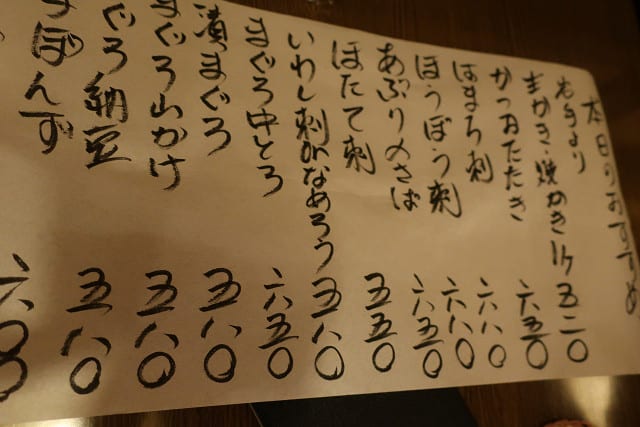 本日のおすすめ
岩手より
生かき・焼かき 1ケ 五二〇
かつおたたき 六五〇
はまち刺 六八〇
ほうぼう刺 六八〇
あぶり〆さば 六五〇
ほたて刺 五五〇
いわし刺かなめろう 五八〇
まぐろ中とろ 六五〇
漬まぐろ 五八〇
まぐろ山かけ 五八〇
ぐろ納豆 五八〇
ぽんず 六〇〇